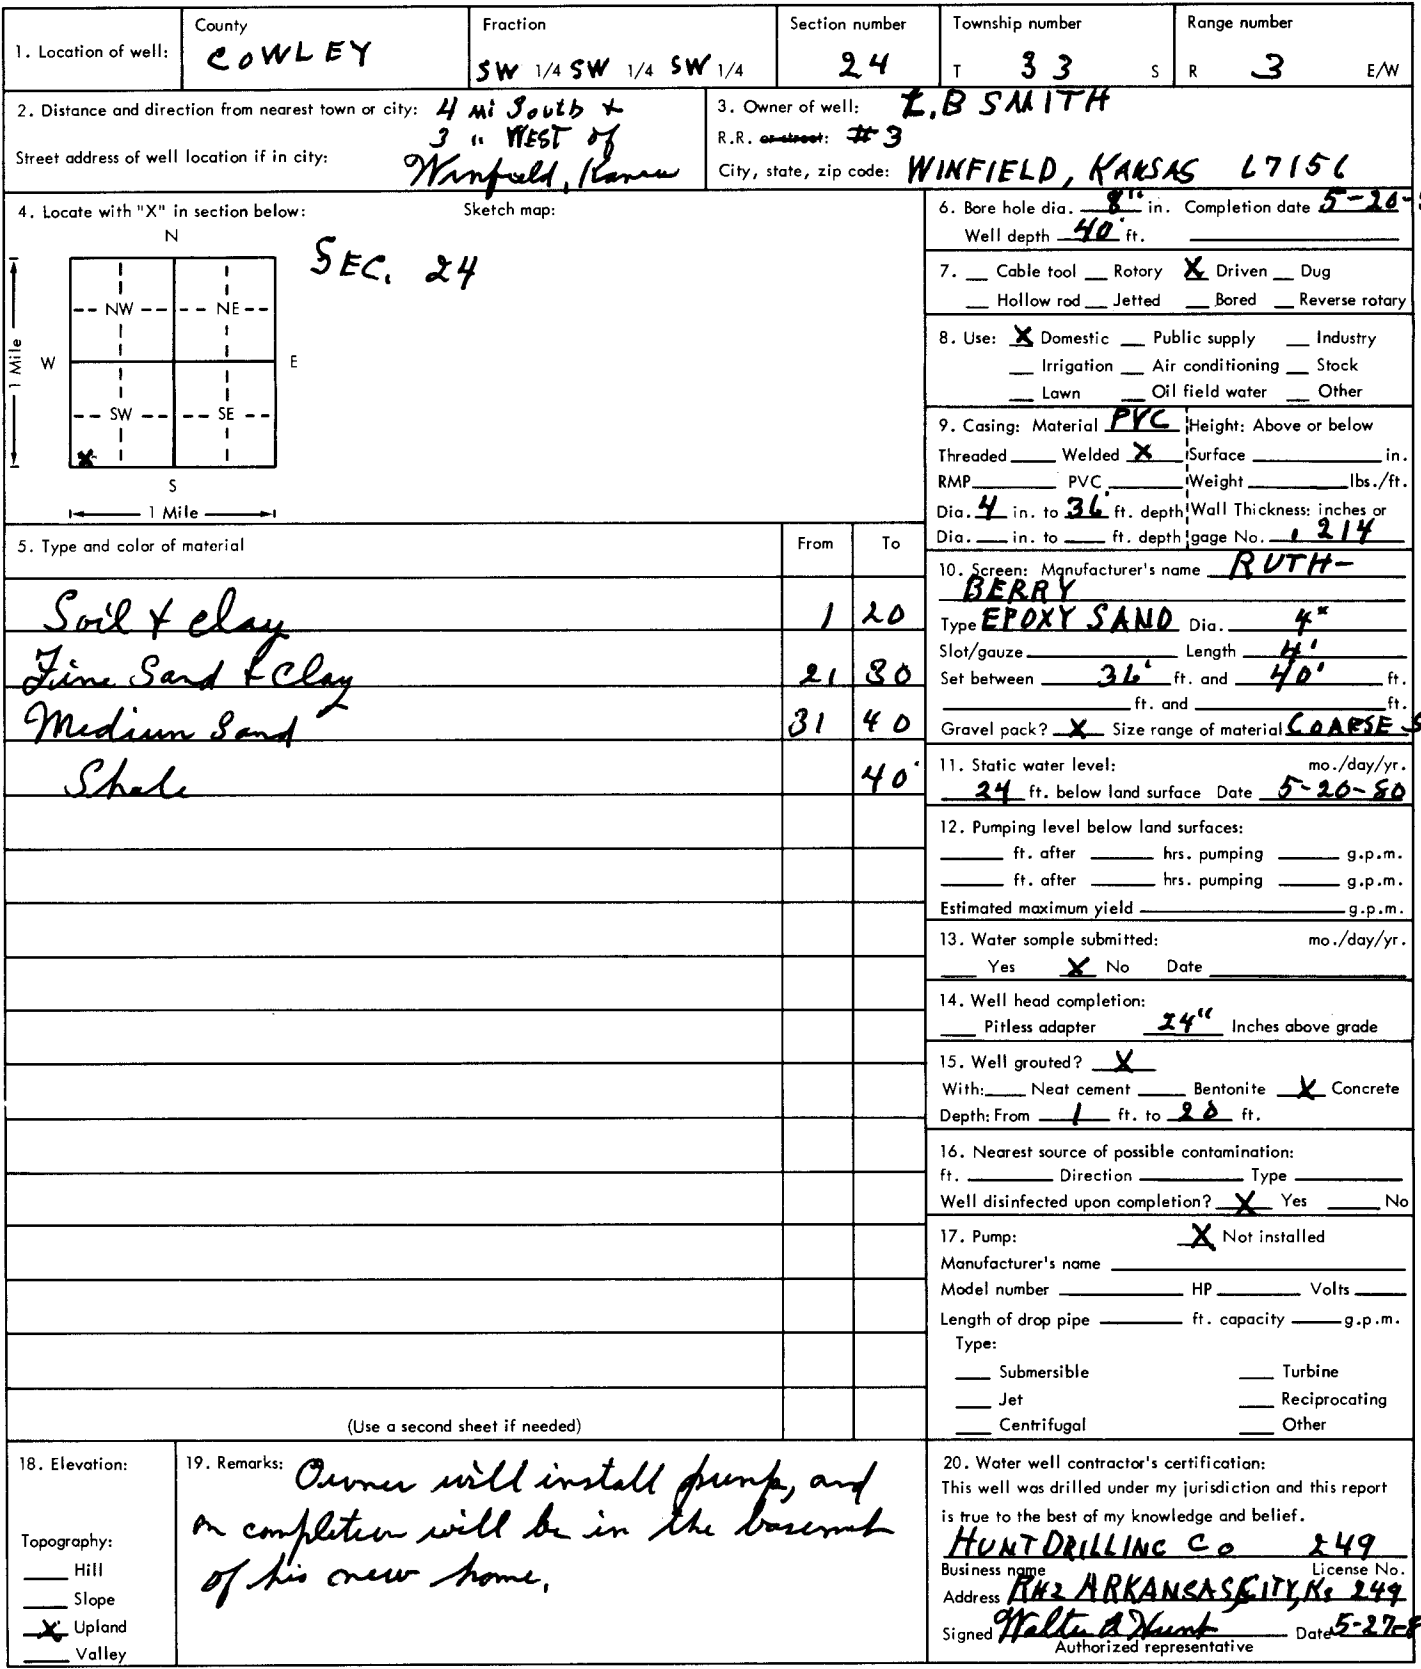 1. Location of well: County COWLEY Fraction SW 1/4 SW 1/4 SW 1/4 Section number 24 Township number T 33 S Range number R 3 E/W
2. Distance and direction from nearest town or city: 4 mi South +
3 " WEST of
Street address of well location if in city: Winfield, Kansas
3. Owner of well: L.B SMITH
R.R. or street: #3
City, state, zip code: WINFIELD, KANSAS 67156
4. Locate with "X" in section below: Sketch map:
N
SEC. 24
NW NE
1 Mile W E
SW SE
X
S
1 Mile
5. Type and color of material From To
Soil + clay 1 20
Fine Sand + Clay 21 30
Medium Sand 31 40
Shale 40'
(Use a second sheet if needed)
6. Bore hole dia. 8" in. Completion date 5-20-
Well depth 40' ft.
7. Cable tool Rotory X Driven Dug
Hollow rod Jetted Bored Reverse rotary
8. Use: X Domestic Public supply Industry
Irrigation Air conditioning Stock
Lawn Oil field water Other
9. Casing: Material PVC Height: Above or below
Threaded Welded X Surface in.
RMP PVC Weight lbs./ft.
Dia. 4 in. to 36' ft. depth Wall Thickness: inches or
Dia. in. to ft. depth gage No. .214
10. Screen: Manufacturer's name RUTH-
BERRY
Type EPOXY SAND Dia. 4"
Slot/gauze Length 4'
Set between 36' ft. and 40' ft.
ft. and ft.
Gravel pack? X Size range of material COARSE S
11. Static water level: mo./day/yr.
24 ft. below land surface Date 5-20-80
12. Pumping level below land surfaces:
ft. after hrs. pumping g.p.m.
ft. after hrs. pumping g.p.m.
Estimated maximum yield g.p.m.
13. Water sample submitted: mo./day/yr.
Yes X No Date
14. Well head completion:
Pitless adapter 24" Inches above grade
15. Well grouted? X
With: Neat cement Bentonite X Concrete
Depth: From 1 ft. to 20 ft.
16. Nearest source of possible contamination:
ft. Direction Type
Well disinfected upon completion? X Yes No
17. Pump: X Not installed
Manufacturer's name
Model number HP Volts
Length of drop pipe ft. capacity g.p.m.
Type:
Submersible Turbine
Jet Reciprocating
Centrifugal Other
18. Elevation:
Topography:
Hill
Slope
X Upland
Valley
19. Remarks: Owner will install pump, and
on completion will be in the basement
of his new home.
20. Water well contractor's certification:
This well was drilled under my jurisdiction and this report
is true to the best of my knowledge and belief.
HUNT DRILLING Co 249
Business name License No.
Address R#2 ARKANSAS CITY, Ks 249
Signed Walter A Hunt Date 5-27-8
Authorized representative